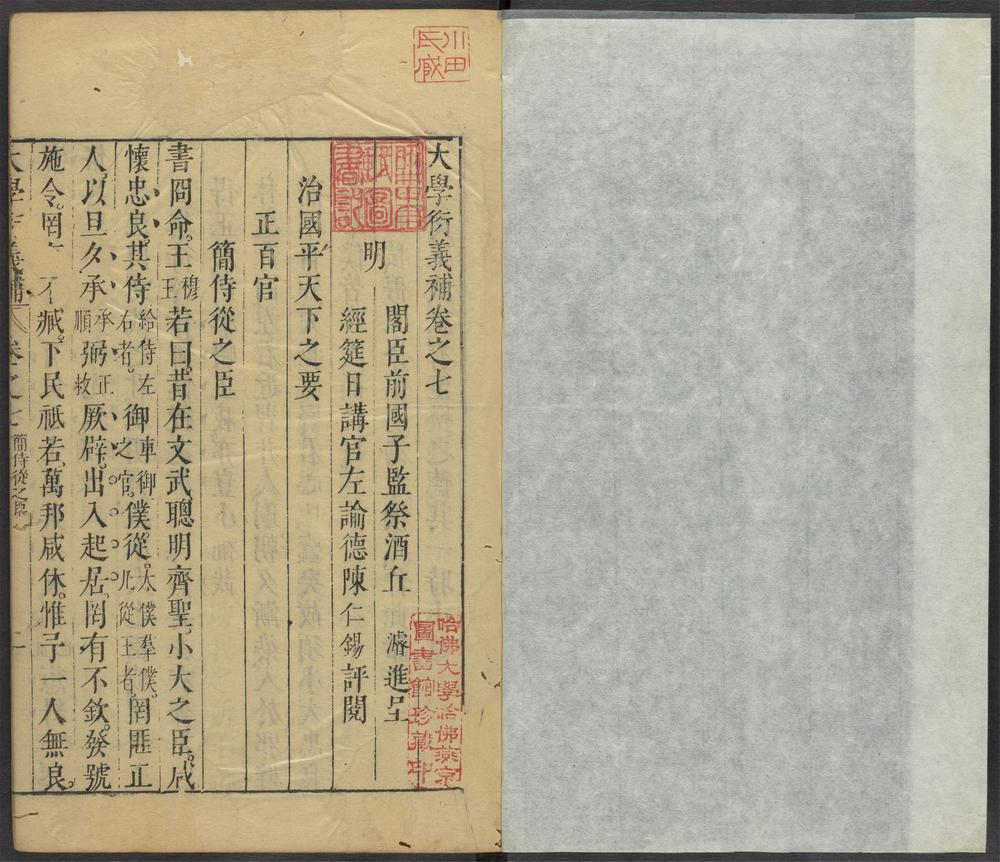 大學衍義補卷之七
閣臣前國子監祭酒丘 濬進呈
明
經筵日講官左諭德陳仁錫評閱
治國平天下之要
正百官
簡侍從之臣
書冏命王穆王若曰昔在文武聰明齊聖小大之臣咸
懷忠良其侍給侍左右者御車御之官僕從太僕羣僕凡從王者罔匪正
人以旦夕承承順弼正救厥辟出入起居罔有不欽發號
施令罔 不臧下民祗若萬邦咸休惟予一人無良
大學衍義補 卷之七 簡侍從之臣 一
川田氏藏
哈佛大學哈佛燕京圖書館珍藏印